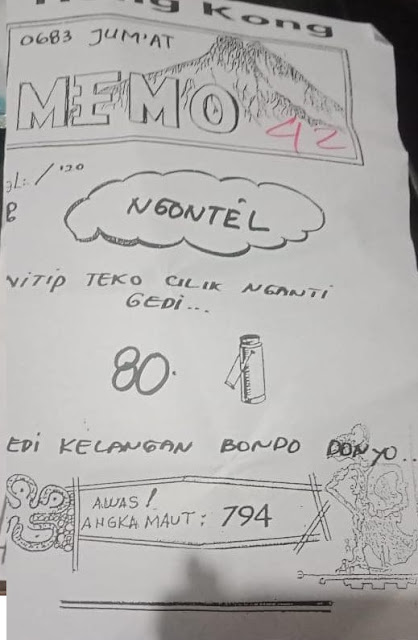 Kong
0683 JUM'AT
MEMO
42
/ '20
NGONTEL
NITIP TEKO CILIK NGANTI
GEDI...
80.
EDI KELANGAN BONDO DONYO..
AWAS!
ANGKA MAUT: 794